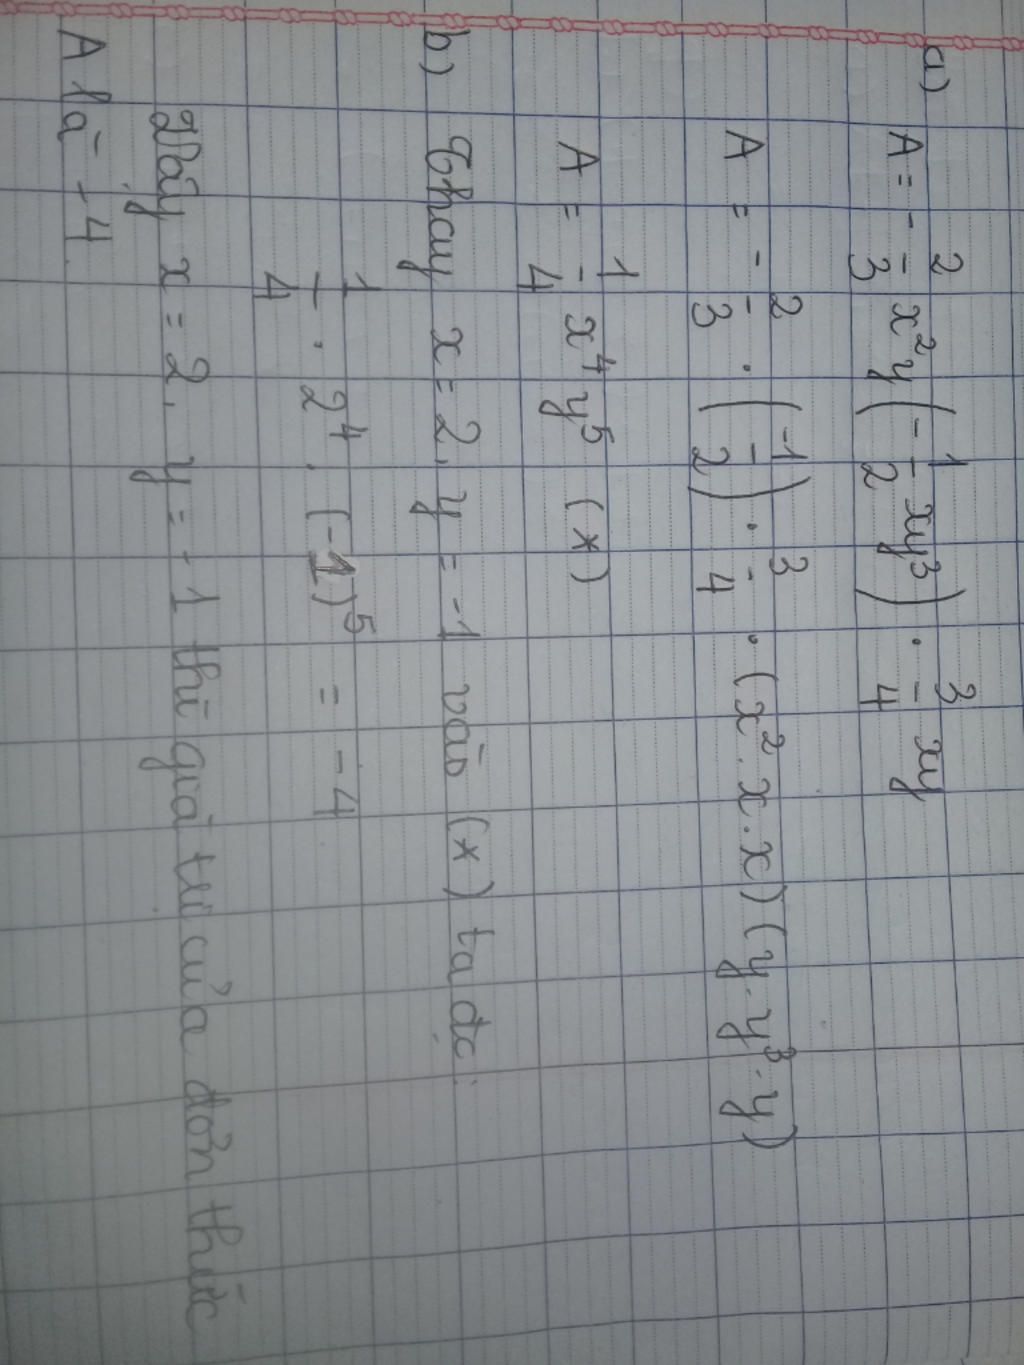 a)
A = - 2/3 x²y (- 1/2 xy³) . 3/4 xy
A = - 2/3 . (-1/2) . 3/4 . (x² . x . x) (y . y³ . y)
A = 1/4 x⁴ y⁵ (*)
b) Thay x = 2, y = -1 vào (*) ta đc:
1/4 . 2⁴ . (-1)⁵ = -4
Vậy x = 2, y = -1 thì giá trị của đơn thức
A là -4